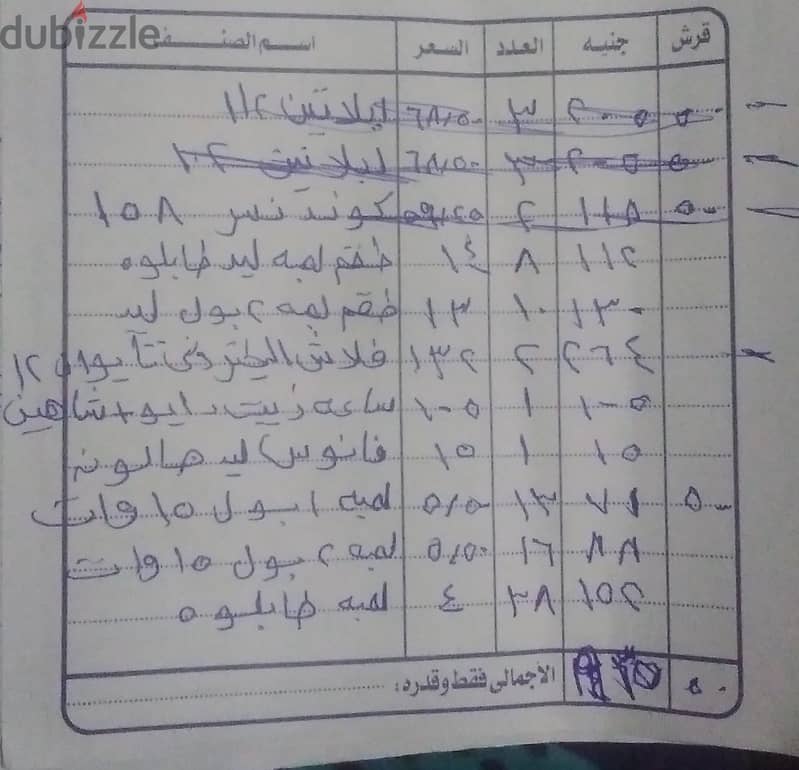 dubizzle
قرش جنيه العدد السعر اسم الصنف
٣ ٦٨٫٥٠ ابلاتين ١١٢
٦٨٫٥٠ ابلاتين
٥٠ ١١٨ ٢ ٥٩٫٢٥ كوندنسر ١٥٨
١١٢ ٨ ١٤ طقم لمبه ليد طابلوه
١٣٠ ١٠ ١٣ طقم لمبه ٢ بول ليد
٢٦٤ ٢ ١٣٢ فلاش اليكتروني تايوان ١٢
١٠٥ ١ ١٠٥ ساعه زيت شاهين
١٥ ١ ١٥ فانوس ليد صالونه
٥٠ ٧١ ١٣ ٥٫٥٠ لمبه ١ بول ١٥ وات
٨٨ ١٦ ٥٫٥٠ لمبه ٢ بول ١٥ وات
١٥٢ ٣٨ ٤ لمبه طابلوه
٥٠ الأجمالى فقط وقدره: